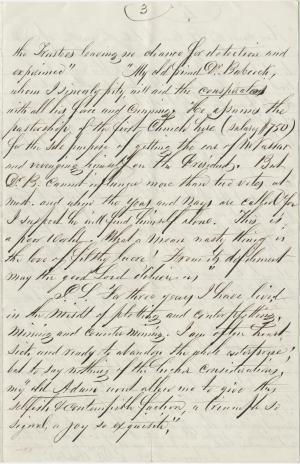 3
the Trustees leaving no chance for detection and
experience" "My old friend Dr. Babcock,
whom I sincerely pity will aid the conspirators
with all his force and cunning. He assumes the
pastorship of the first Church here (salary $150)
for the sole purpose of getting the ear of M. Vassar
and revenging himself on the President. But
Dr. B. cannot influence more than two votes at
most. and when the Yeas and Nays are called for
I suspect he will find himself alone. This is
a poor World. What a mean nasty thing is
the love of filthy lucre! From its defilement
may the good Lord deliver us"
P.S. For three years I have lived
in the midst of plotting and counterplotting,
Mining and Countermining. I am often heart
sick and ready to abandon the whole enterprise,
but to say nothing of the higher considerations,
my "old Adam" wont allow me to give this
selfish & contemptible faction, a triumph so
signal, a joy so exquisite."